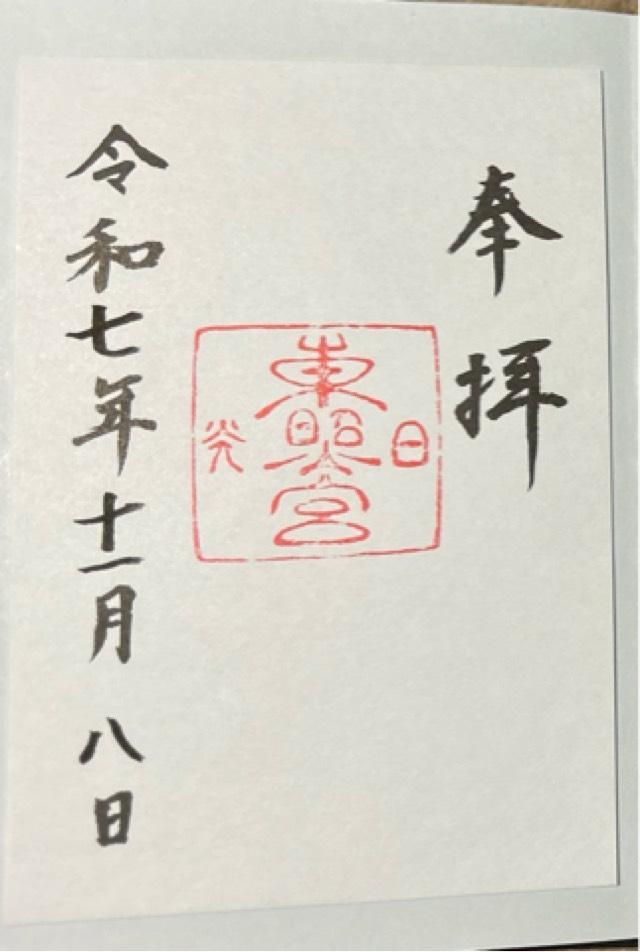 奉拝
日光
東照宮
令和七年十一月八日